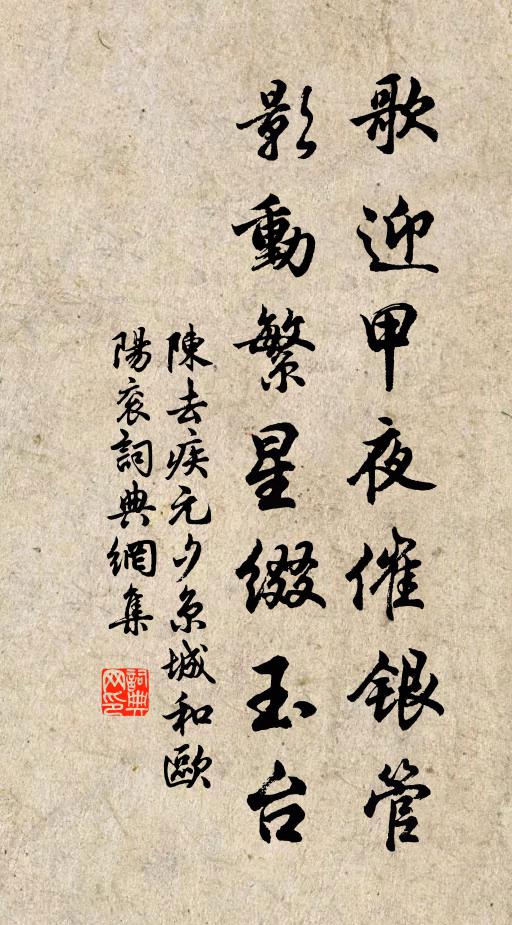 歌迎甲夜催銀管
影動繁星綴玉台
陳去疾元夕京城和歐
陽袞詞典網集
詞典网印